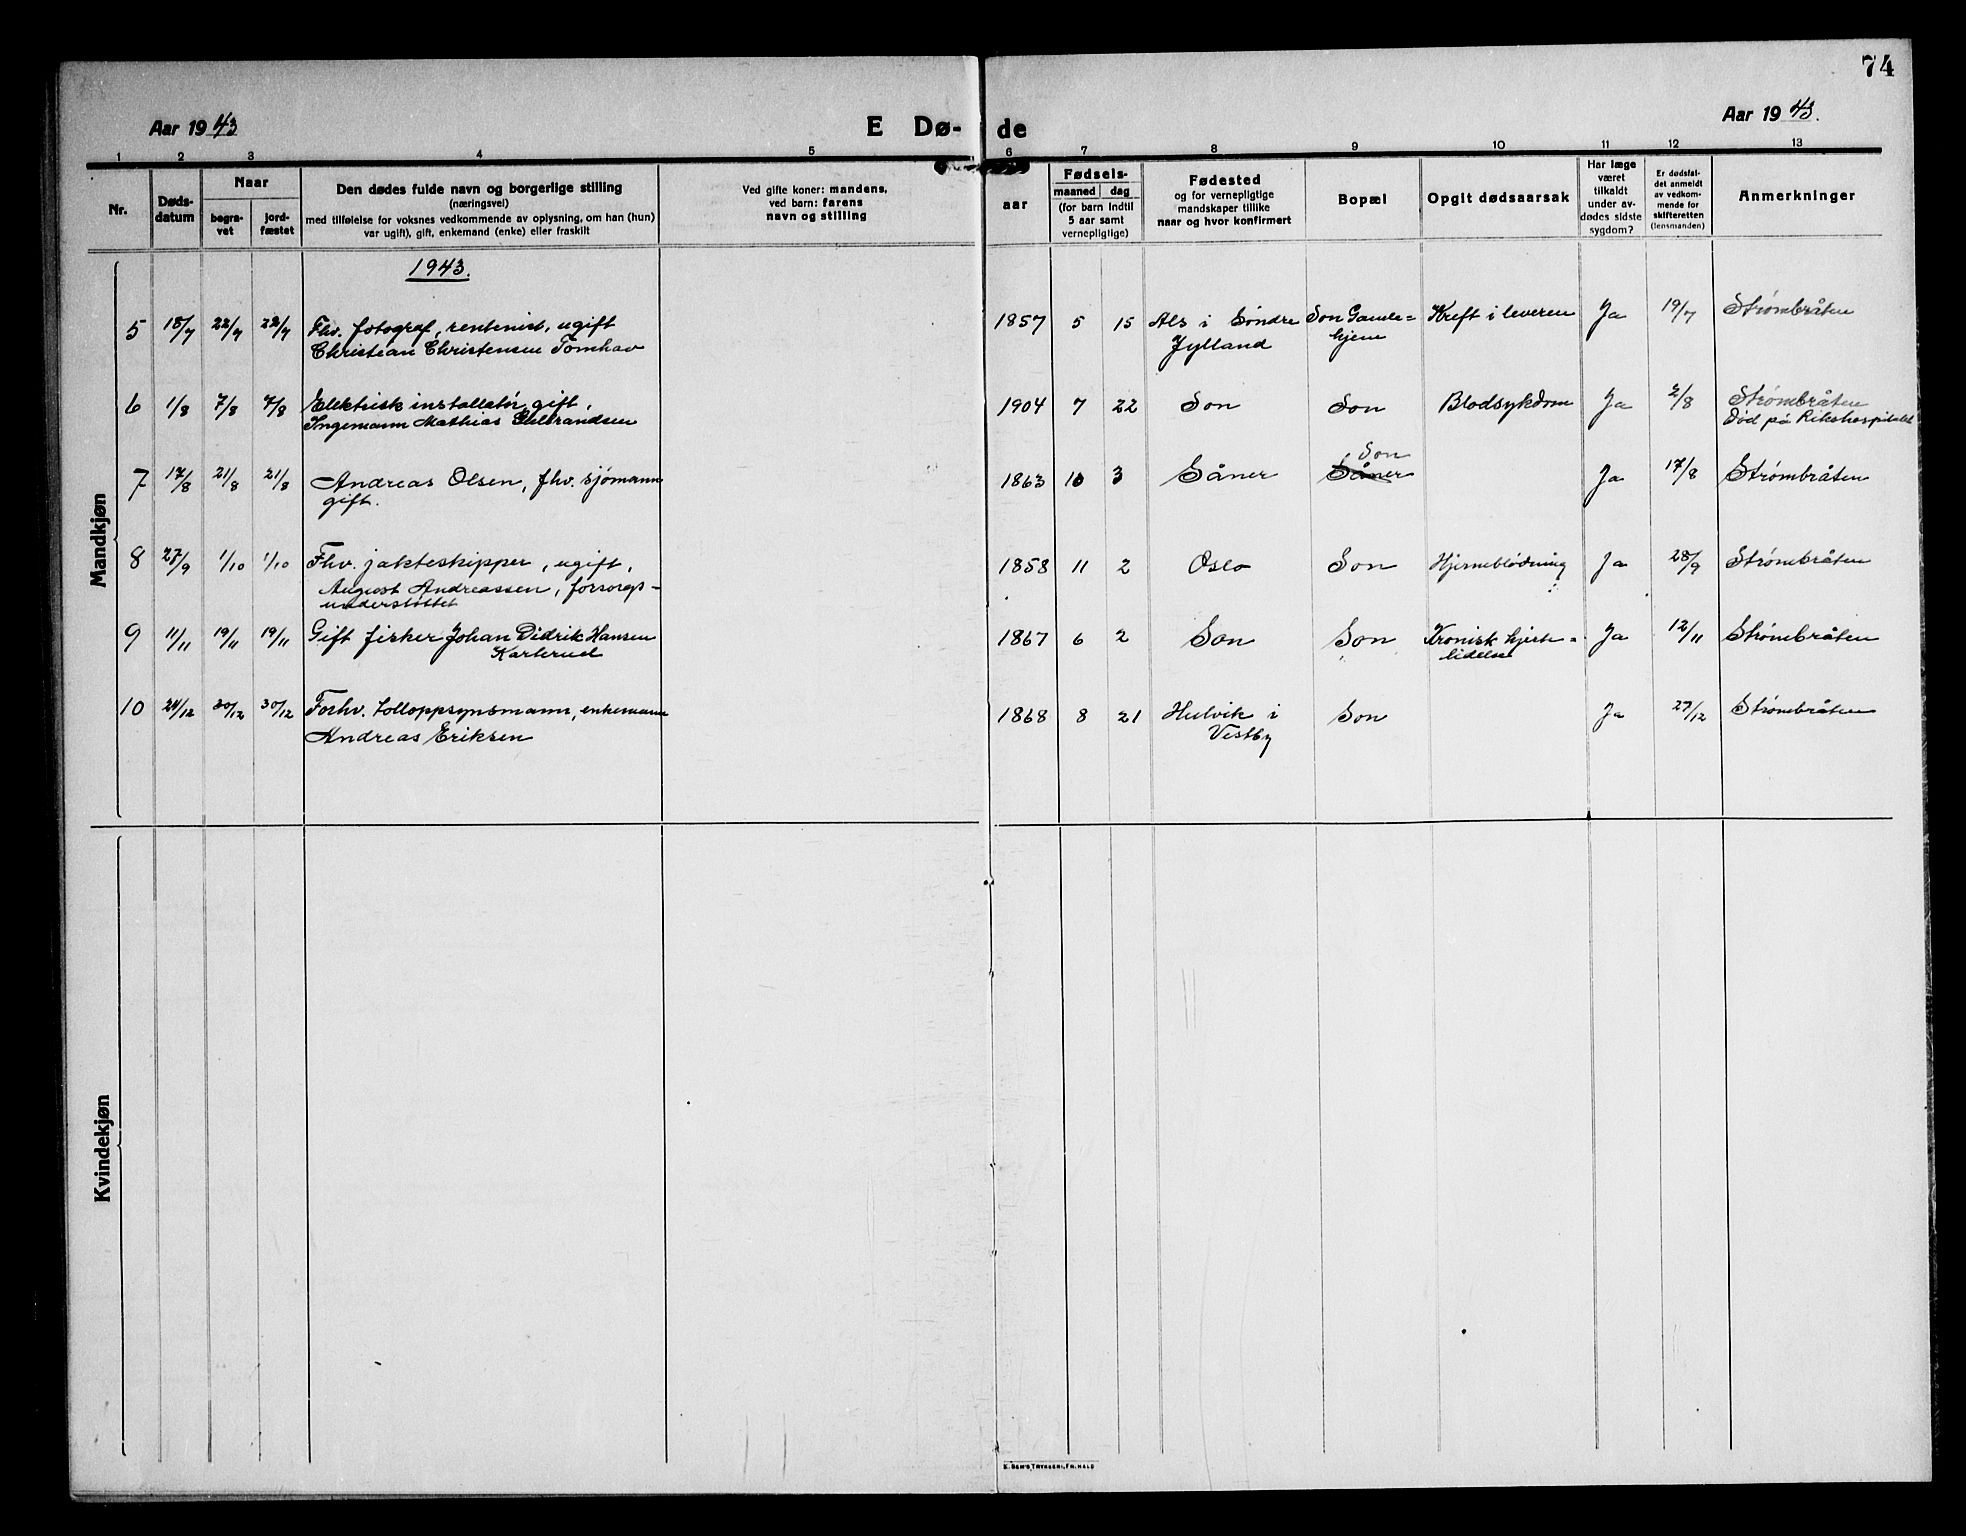 74
Aar 1943
E Dø-
de
Aar 1943.
1 2 3 4 5 6 7 8 9 10 11 12 13
Nr.
Døds-
datum
Naar
begra-
vet
jord-
fæstet
Den dødes fulde navn og borgerlige stilling
(næringsvei)
med tilføielse for voksnes vedkommende av oplysning, om han (hun)
var ugift), gift, enkemand (enke) eller fraskilt
Ved gifte koner: mandens,
ved barn: farens
navn og stilling
Fødsels-
aar
maaned
dag
(for barn indtil
5 aar samt
vernepligtige)
Fødested
og for vernepligtige
mandskaper tillike
naar og hvor konfirmert
Bopæl
Opgit dødsaarsak
Har læge
været
tilkaldt
under av-
dødes sidste
sygdom?
Er dødsfal-
det anmeldt
av vedkom-
mende for
skifteretten
(lensmanden)
Anmerkninger
Mandkjøn
1943.
5 18/7 22/7 22/7 Fhv. fotograf, rentenist, ugift 1857 5 15 Als i Søndre Son Gamle= Kreft i leveren Ja 19/7 Strømbråten
Christian Christensen Tomhav Jylland hjem
6 1/8 7/8 7/8 Elektrisk installatør, gift, 1904 7 22 Son Son Blodsykdom Ja 2/8 Strømbråten
Ingemann Mathias Gulbrandsen Død på Rikshospitalet
Son
7 17/8 21/8 21/8 Andreas Olsen, fhv. sjømann 1863 10 3 Såner Såner Ja 17/8 Strømbråten
gift.
8 27/9 1/10 1/10 Fhv. jakteskipper, ugift, 1858 11 2 Oslo Son Hjerneblødning Ja 28/9 Strømbråten
August Andreassen, forsorgs-
understøttet
9 11/11 19/11 19/11 Gift fisker Johan Didrik Hansen 1867 6 2 Son Son Kronisk hjerte= Ja 12/11 Strømbråten
Karlsrud lidelse
10 24/12 30/12 30/12 Forhv. tolloppsynsmann, enkemann 1868 8 21 Hulvik i Son Ja 27/12 Strømbråten
Andreas Eriksen Vestby
Kvindekjøn
E. SEM'S TRYKKERI, FR.HALD